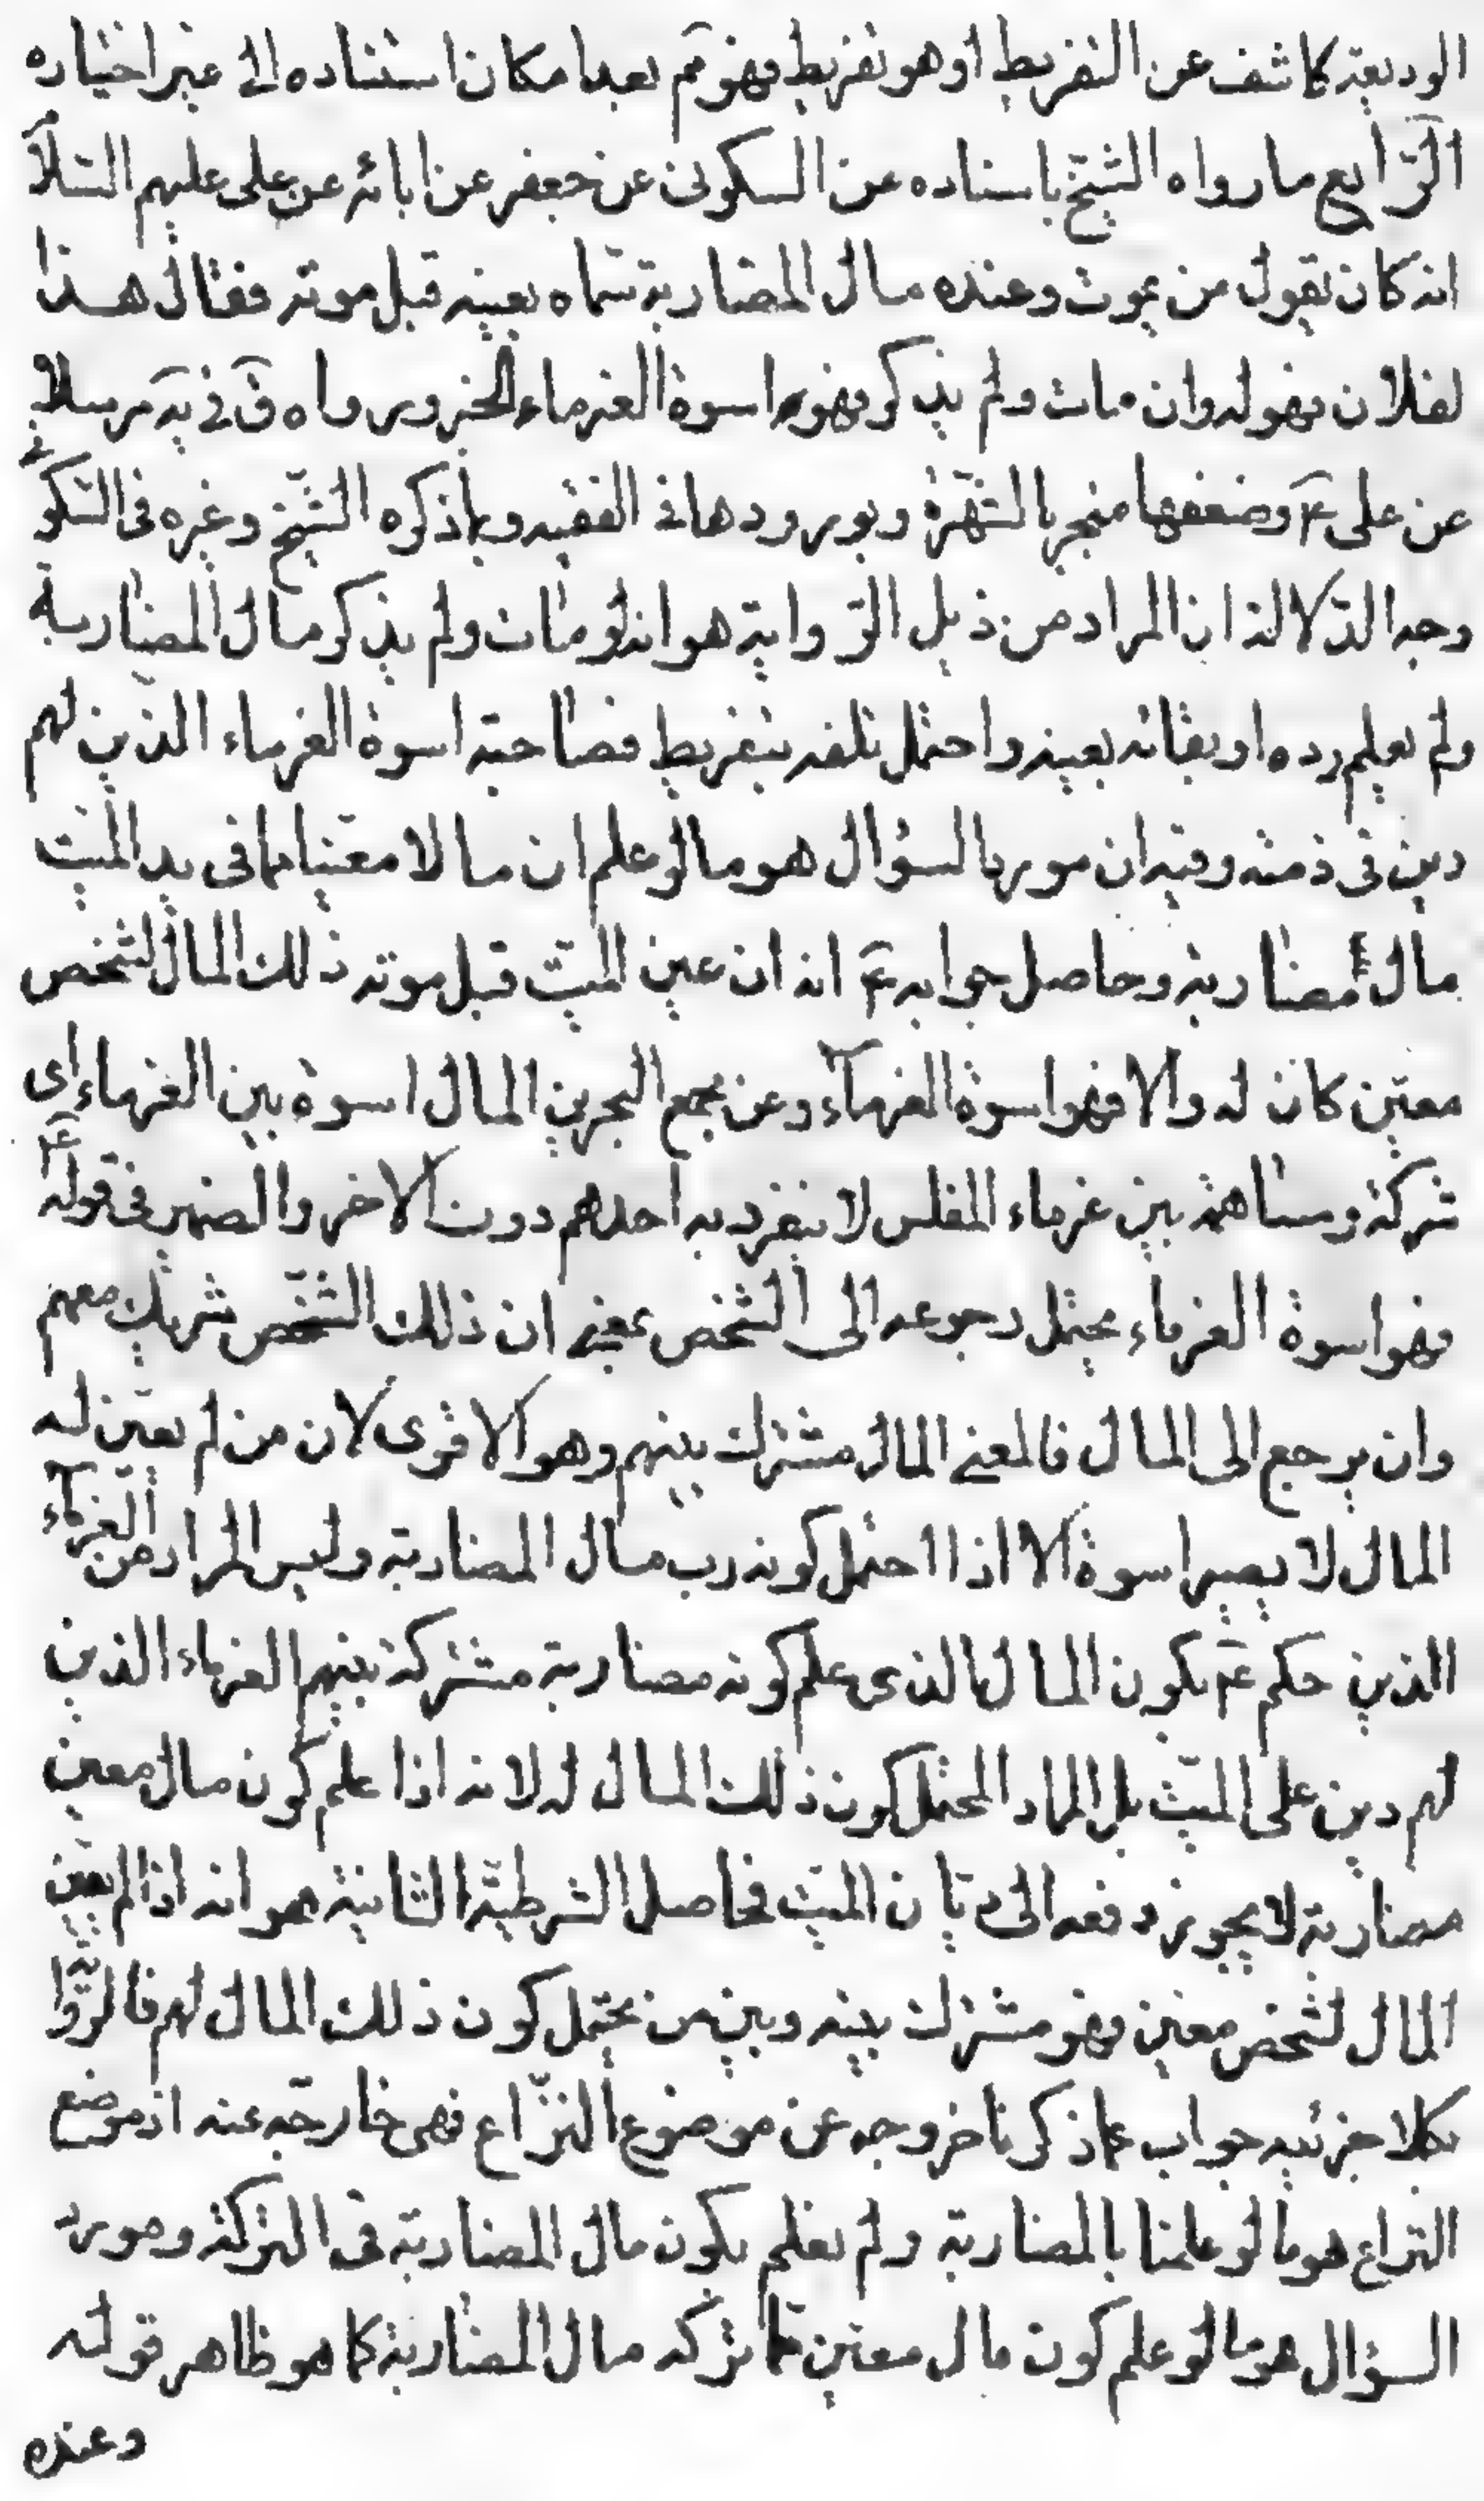 الوديعة كاشف عن التفريط او هو تفريط فهو مم بعد امكان استناده الى غير اختياره
الرّابع ما رواه الشيخ باسناده عن السكونى عن جعفر عن ابائه عن على عليهم السّلآ
انه كان يقول من يموت وعنده مال المضاربة سماه بعينه قبل موته فقال هذا
لفلان فهو له وان مات ولم يذكر فهو اسوة الغرماء الخبر ورواه ق فى يه مرسلا
عن على ع وضعفها منجبر بالشهرة وبورودها فى الفقيه وبما ذكره الشيخ وغيره فى السّكونى
وجه الدّلالة ان المراد من ذيل الرّواية هو انه لو مات ولم يذكر مال المضاربة
ولم يعلم رده او بقائه بعينه واحتمل تلفه بتفريط فصاحبه اسوة الغرماء الذين لهم
دين فى ذمته وفيه ان مورد السؤال هو ما لو علم ان مالا معيّنا مما فى يد الميّت
مال مضاربة وحاصل جوابه ع انه ان عين الميّت قبل موته ذلك المال لشخص
معيّن كان له والا فهو اسوة الغرمآء وعن مجمع البحرين المال اسوة بين الغرماء اى
شركة ومساهمة بين غرماء المفلس لا ينفرد به احدهم دون الاخر والضمير فى قوله ع
فهو اسوة الغرماء يحتمل رجوعه الى الشخص بمعنى ان ذلك الشّخص شريك معهم
وان يرجع الى المال فالمعنى المال مشترك بينهم وهو الاقوى لان من لم يعيّن له
المال لا يصير اسوة الا اذا احتمل كونه رب مال المضاربة وليس المراد من الغرمآء
الذين حكم ع بكون المال الذى علم كونه مضاربة مشتركة بينهم الغرماء الذين
لهم دين على الميّت بل المراد المحتمل كون ذلك المال له لانه اذا علم كون مال معين
مضاربة لا يجوز دفعه الى ديّان الميّت فحاصل الشرطيّة الثانية هو انه اذا لم يعيّن
المال لشخص معين فهو مشترك بينه وبين من يحتمل كون ذلك المال لهم فالرّواية
بكلا جزئيه جواب عما ذكرنا خروجه عن موضوع النزّاع فهى خارجة عنه اذ موضع
النزاع هو ما لو علمنا بالمضاربة ولم نعلم بكون مال المضاربة فى التركة ومورد
السؤال هو ما لو علم كون مال معيّن مما تركه مال المضاربة كما هو ظاهر قوله
وعنده